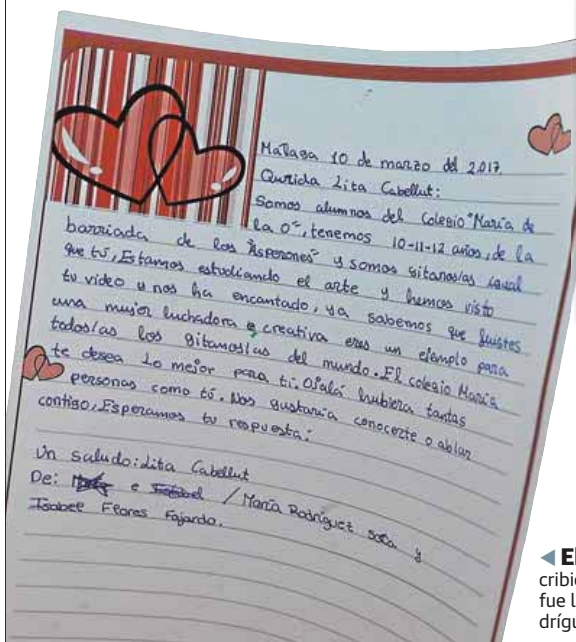 Malaga 10 de marzo del 2.017.
Querida Lita Cabellut:
Somos alumnos del colegio "María de
la O", tenemos 10-11-12 años, de la
barriada de los "Asperones" y somos gitanos/as igual
que tú, Estamos estudiando el arte y hemos visto
tu video y nos ha encantado, ya sabemos que fuistes
una mujer luchadora y creativa eres un ejemplo para
todos/as los gitanos/as del mundo. El colegio María
te desea Lo mejor para ti. Ojalá hubiera tantas
personas como tú. Nos gustaria conocerte o ablar
contigo, Esperamos tu respuesta:
Un saludo: Lita Cabellut
De: e / María Rodríguez sosa y
Isabel Flores Fajardo.
El
cribi
fue l
drígu